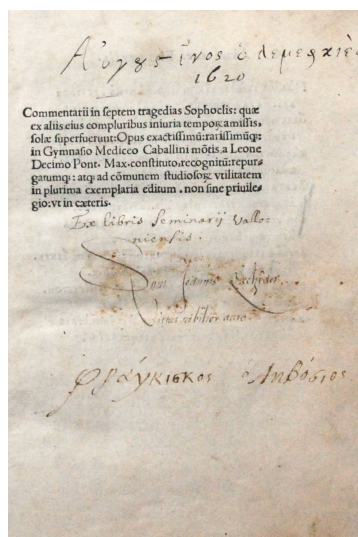 Αὐγουστῖνος ὁ
1620
Commentarii in septem tragedias Sophoclis: quæ
ex aliis eius compluribus iniuria temporꝝ amissis,
solæ superfuerunt: Opus exactissimū: rarissimūq;:
in Gymnasio Mediceo Caballini mōtis, a Leone
Decimo Pont. Max. constituto, recognitū: repur-
gatumq;: atq; ad cōmunem studiosoꝝ vtilitatem
in plurima exemplaria editum. non sine priuile-
gio: vt in cæteris.
Ex libris Seminarij Vallo-
niensis.
Sum Joannis
Virtus nobilior auro
φράγκισκος ὁ